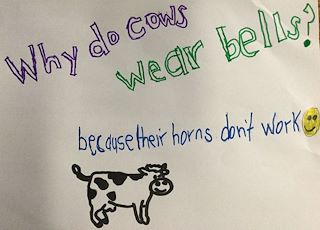 Why do cows
wear bells?
because their horns don't work